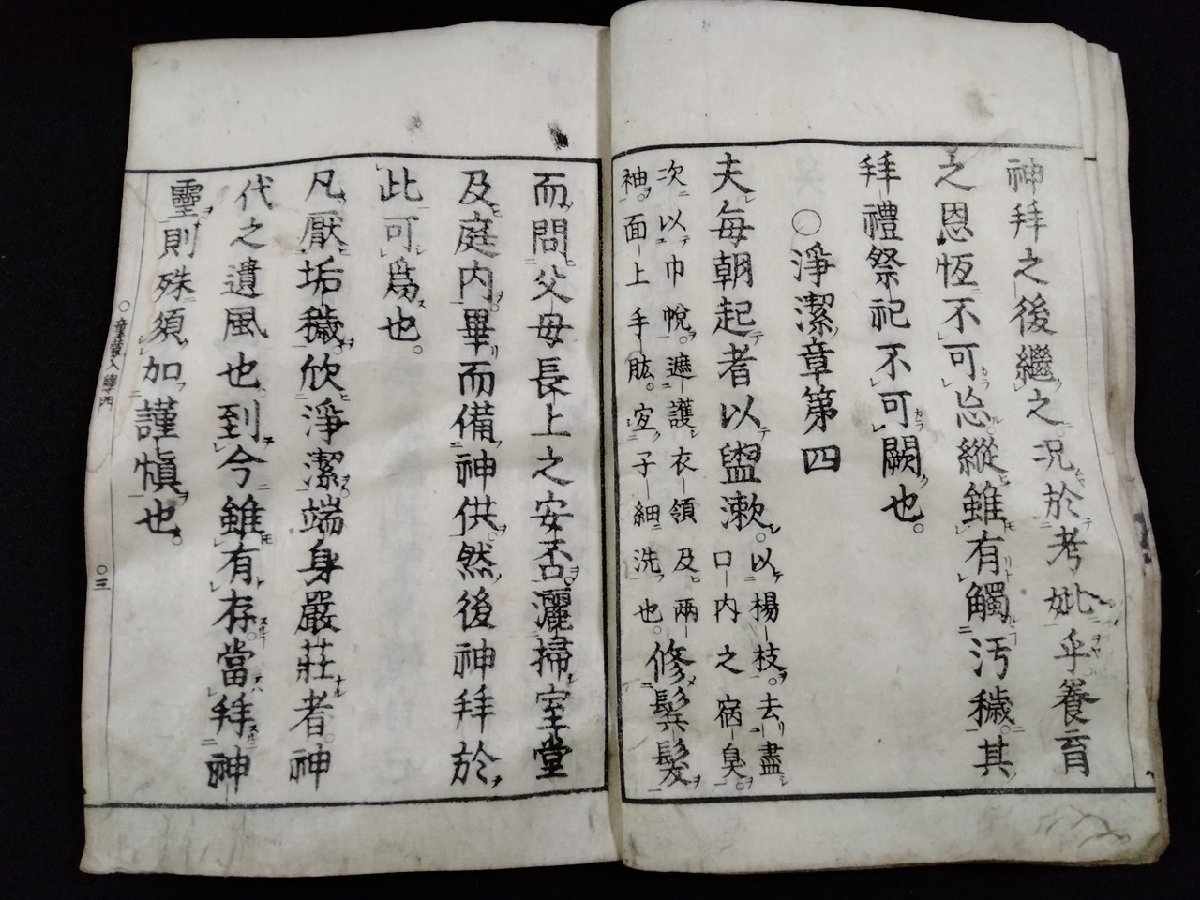 神拜之後繼之況於考妣乎養育
之恩恆不可忘縱雖有觸汚穢其
拜禮祭祀不可闕也。
○淨潔章第四
夫每朝起者以盥漱。以楊枝。去盡
口内之宿臭。
次以巾帨。遮護衣領及兩
袖。面上手肱。子細洗也。修鬂髮
而問父母長上之安否。灑掃室堂
及庭内。畢而備神供。然後神拜於
此可爲也。
凡厭垢穢。欣淨潔。端身嚴莊者。神
代之遺風也。到今雖有存。當拜神
靈則殊須加謹愼也。
○三